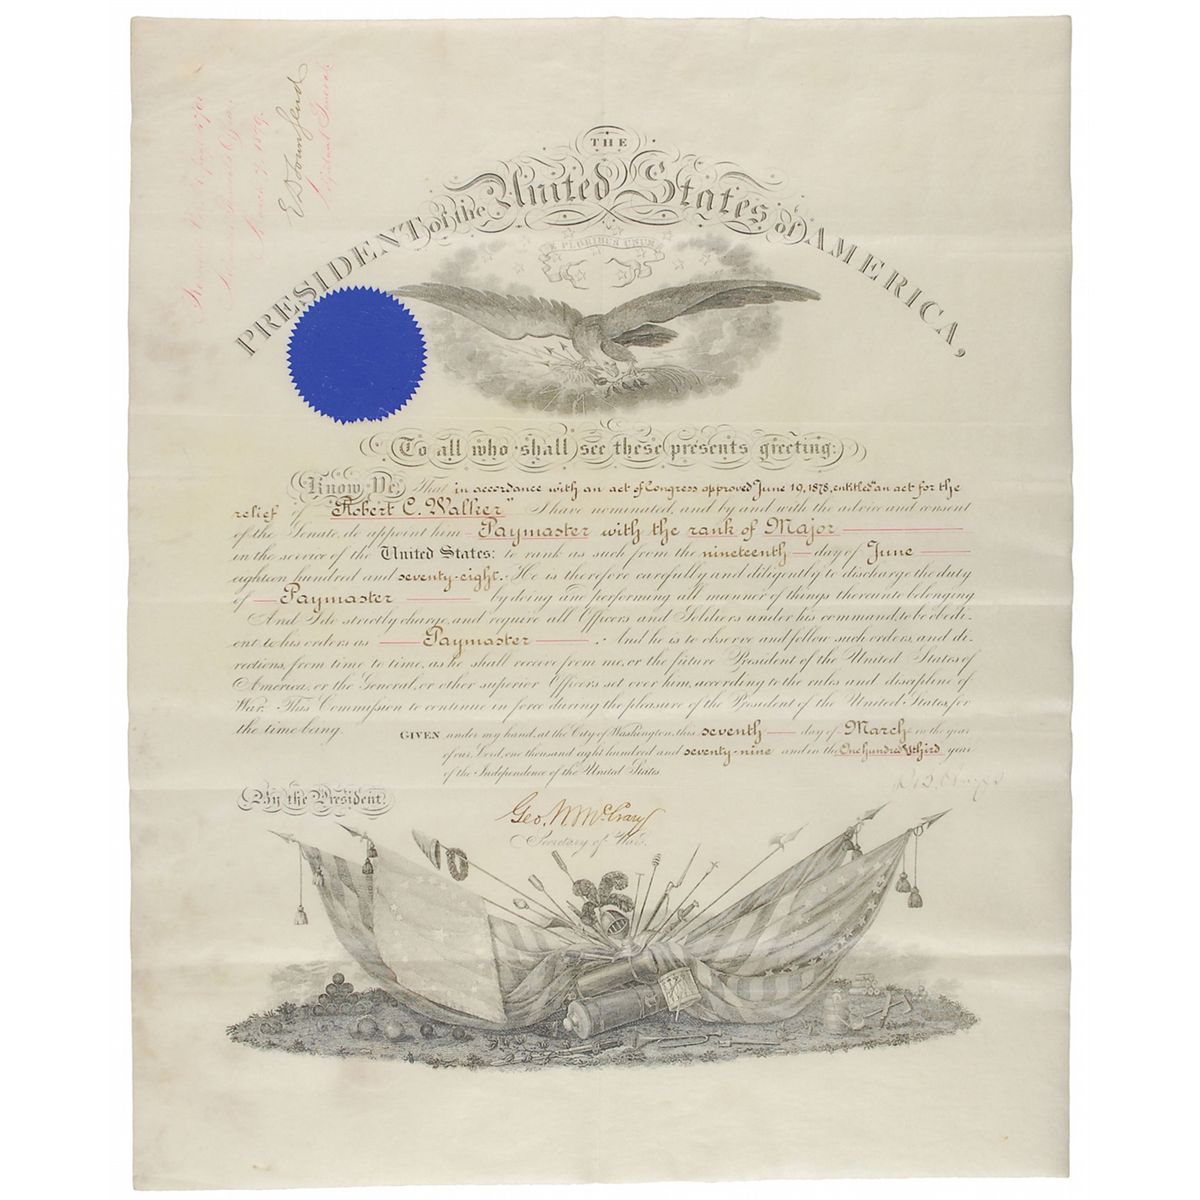 Adjutant General's Office
March 7, 1879.
E D Townsend
Adjutant General.
THE
PRESIDENT of the United States of AMERICA,
E PLURIBUS UNUM
To all who shall see these presents greeting:
Know Ye, That in accordance with an act of Congress approved June 19, 1878, entitled "an act for the
relief of Robert C. Walker" I have nominated, and by and with the advice and consent
of the Senate, do appoint him Paymaster with the rank of Major
in the service of the United States: to rank as such from the nineteenth day of June
eighteen hundred and seventy-eight. He is therefore carefully and diligently to discharge the duty
of Paymaster by doing and performing all manner of things thereunto belonging
And I do strictly charge, and require all Officers and Soldiers under his command, to be obedi-
ent to his orders as Paymaster. And he is to observe and follow such orders, and di-
rections, from time to time, as he shall receive from me, or the future President of the United States of
America, or the General, or other superior Officers set over him, according to the rules and discipline of
War. This Commission to continue in force during the pleasure of the President of the United States, for
the time being.
GIVEN under my hand, at the City of Washington, this seventh day of March in the year
of our Lord, one thousand eight hundred and seventy-nine and in the One hundred & third year
of the Independence of the United States
By the President:
Geo. W. McCrary
Secretary of War.